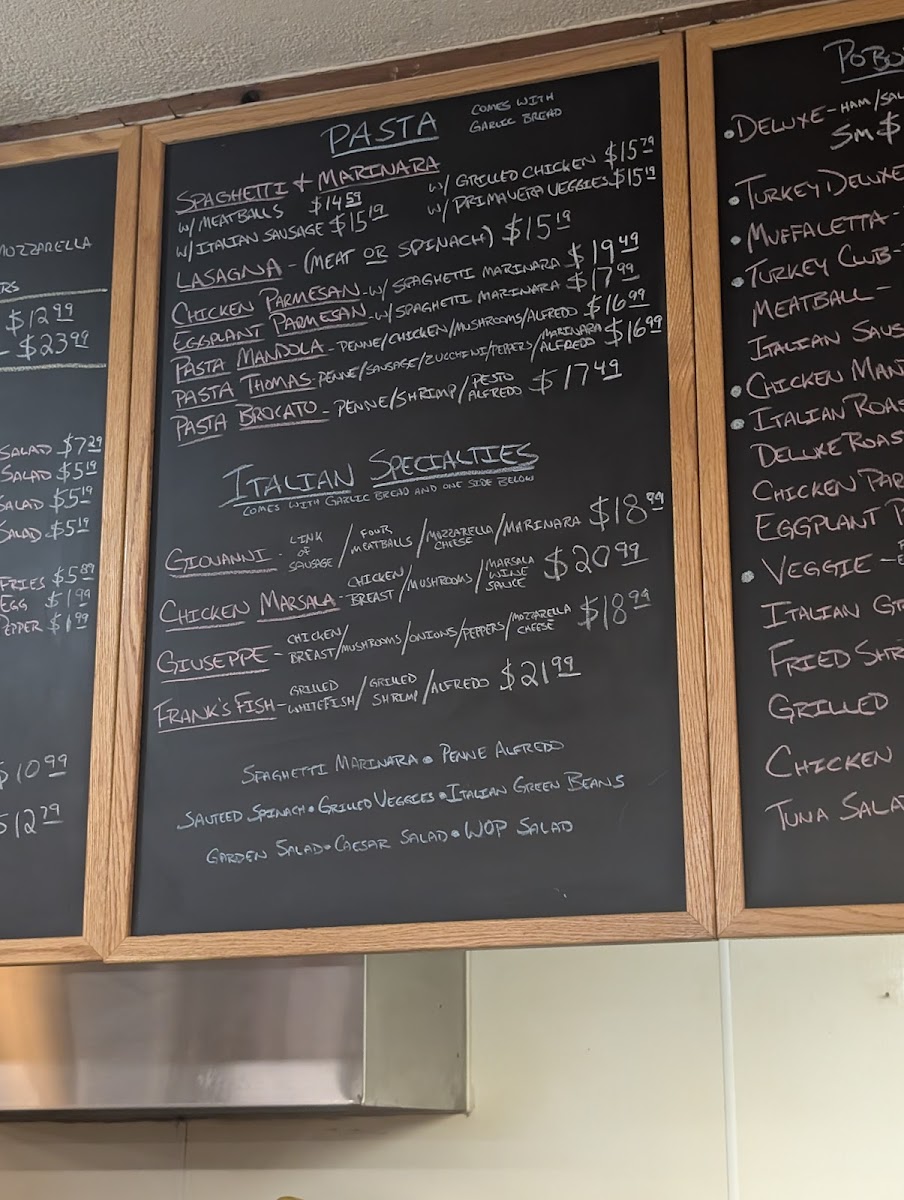 MOZZARELLA
$12.99
- $23.99
SALAD $7.29
SALAD $5.19
SALAD $5.19
SALAD $5.19
FRIES $5.89
EGG $1.99
PEPPER $1.99
$10.99
$12.79
PASTA COMES WITH GARLIC BREAD
SPAGHETTI & MARINARA
W/ MEATBALLS $14.59
W/ ITALIAN SAUSAGE $15.19
W/ GRILLED CHICKEN $15.79
W/ PRIMAVERA VEGGIES $15.19
LASAGNA - (MEAT OR SPINACH) $15.19
CHICKEN PARMESAN - W/ SPAGHETTI MARINARA $19.49
EGGPLANT PARMESAN - W/ SPAGHETTI MARINARA $17.99
PASTA MANDOLA - PENNE/CHICKEN/MUSHROOMS/ALFREDO $16.99
PASTA THOMAS - PENNE/SAUSAGE/ZUCCHINI/PEPPERS/MARINARA ALFREDO $16.99
PASTA BROCATO - PENNE/SHRIMP/PESTO ALFREDO $17.49
ITALIAN SPECIALTIES
COMES WITH GARLIC BREAD AND ONE SIDE BELOW
GIOVANNI - LINK OF SAUSAGE/FOUR MEATBALLS/MOZZARELLA CHEESE/MARINARA $18.99
CHICKEN MARSALA - CHICKEN BREAST/MUSHROOMS/MARSALA WINE SAUCE $20.99
GIUSEPPE - CHICKEN BREAST/MUSHROOMS/ONIONS/PEPPERS/MOZZARELLA CHEESE $18.99
FRANK'S FISH - GRILLED WHITEFISH/GRILLED SHRIMP/ALFREDO $21.99
SPAGHETTI MARINARA • PENNE ALFREDO
SAUTEED SPINACH • GRILLED VEGGIES • ITALIAN GREEN BEANS
GARDEN SALAD • CAESAR SALAD • WOP SALAD
• DELUXE - HAM/
SM $
• TURKEY DELUXE
• MUFFALETTA -
• TURKEY CLUB -
MEATBALL -
ITALIAN
• CHICKEN
• ITALIAN
DELUXE
CHICKEN
EGGPLANT
• VEGGIE -
ITALIAN
FRIED
GRILLED
CHICKEN
TUNA